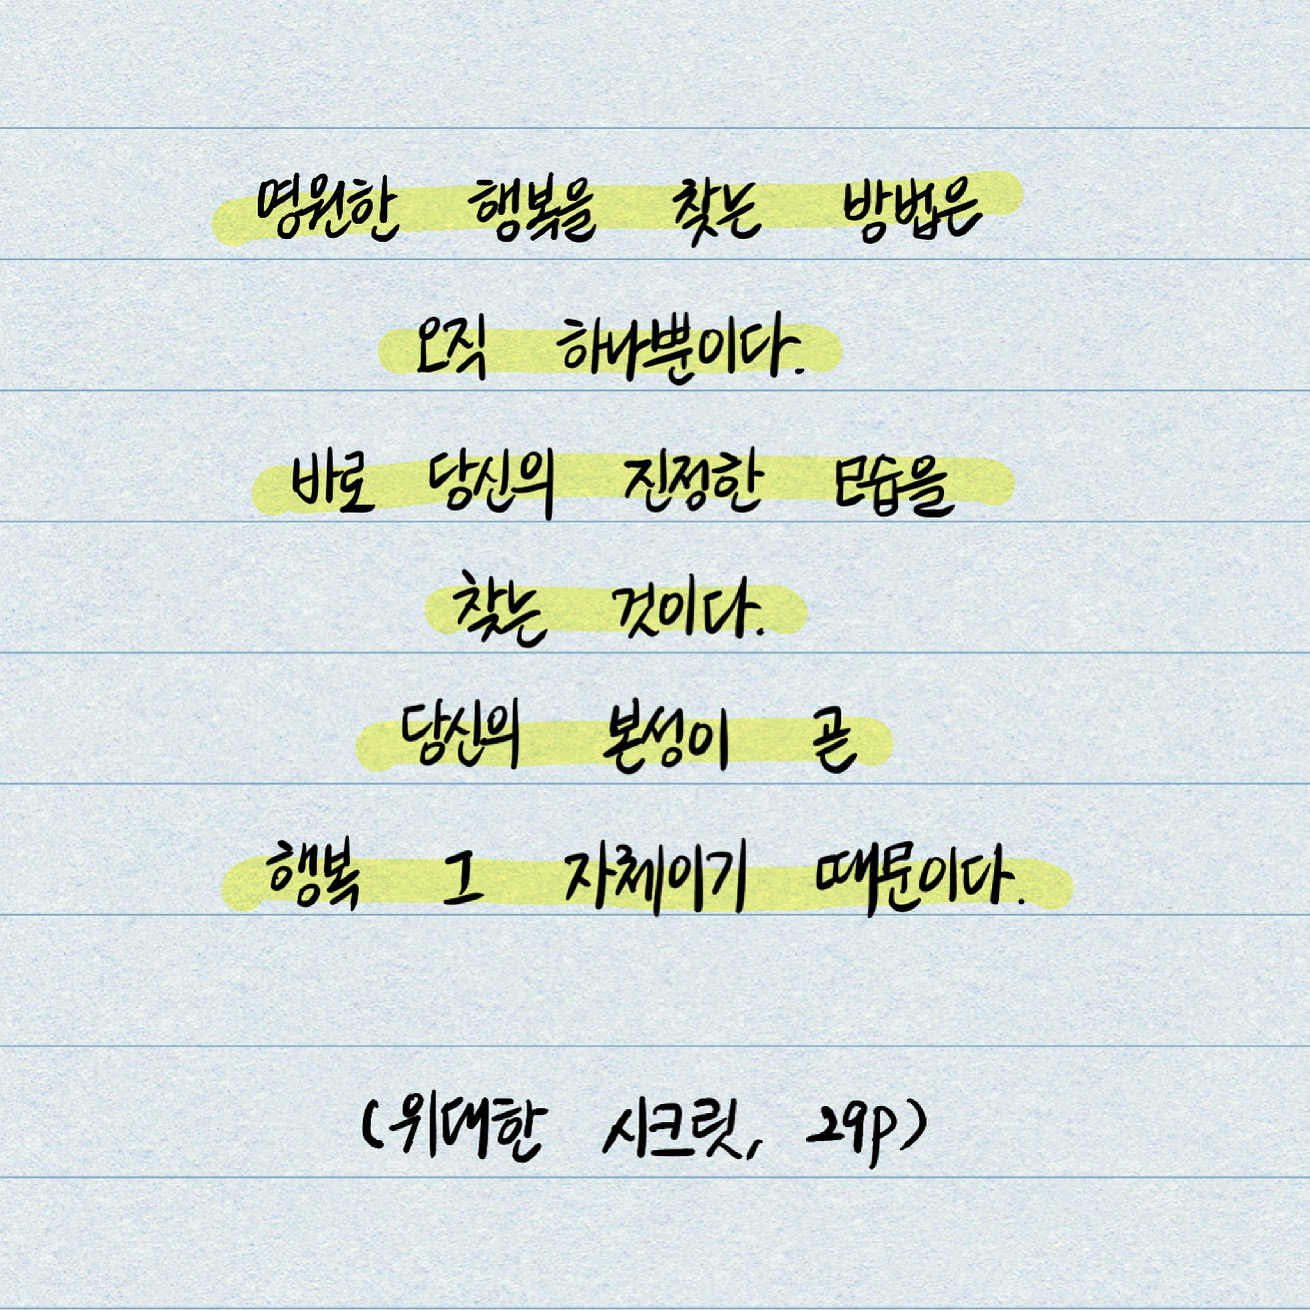 영원한 행복을 찾는 방법은
오직 하나뿐이다.
바로 당신의 진정한 모습을
찾는 것이다.
당신의 본성이 곧
행복 그 자체이기 때문이다.
(위대한 시크릿, 29p)